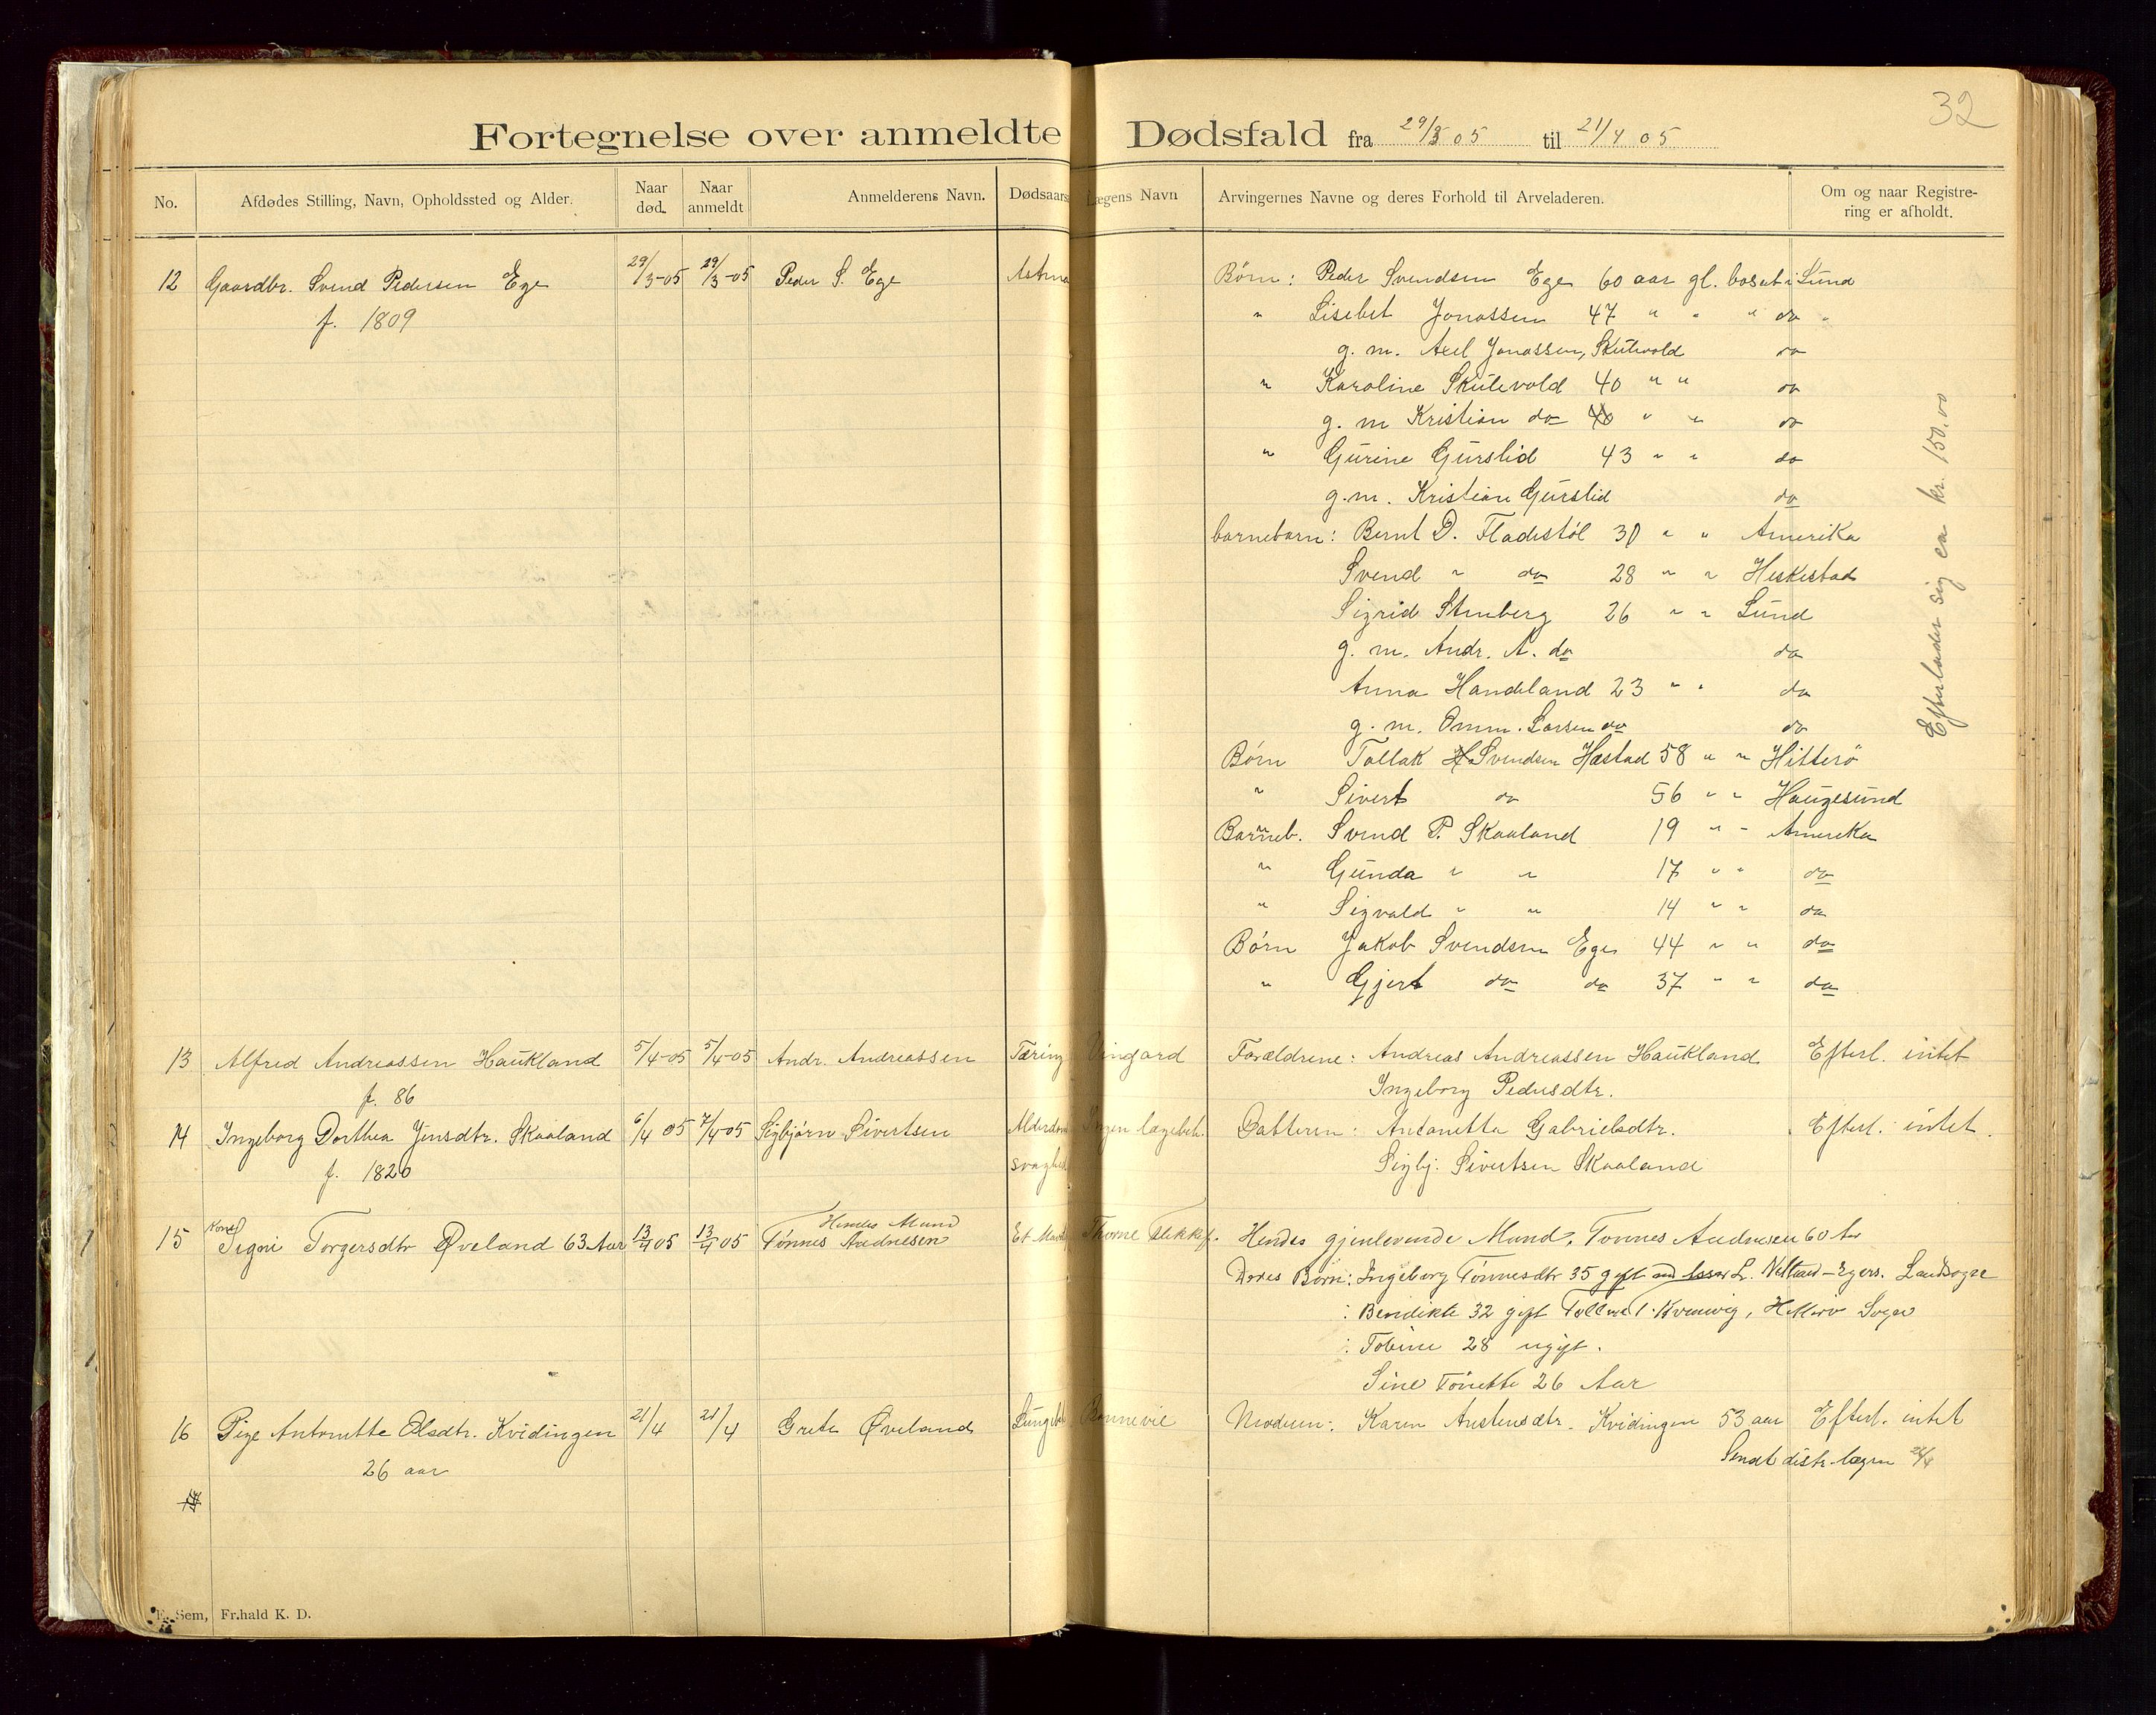 32
Fortegnelse over anmeldte Dødsfald fra 29/3 05 til 21/4 05
No. Afdødes Stilling, Navn, Opholdssted og Alder. Naar død. Naar anmeldt Anmelderens Navn. Dødsaars Lægens Navn Arvingernes Navne og deres Forhold til Arveladeren. Om og naar Registrering er afholdt.
12 Gaardbr. Svend Pedersen Ege 29/3-05 29/3-05 Peder S. Ege Astma Børn: Peder Svendsen Ege 60 aar gl. bosat i Lund
f. 1809 " Lisebet Jonassen 47 " " " do "
g. m. Axel Jonassen, Skutevold do
" Karoline Skülevold 40 " " do
g. m Kristian do " " do
" Gürine Gürslid 43 " " do
g.m. Kristian Gürslid do
barnebarn: Bernt D. Fladestöl 30 " " Amerika
Svend " do 28 " " Heskestad
Sigrid Stenberg 26 " " Lünd
g. m. Andr. A. do do
Anna Handeland 23 " " do
g. m. Omm. Larsen do do
Börn Tollak Svendsen Hæstad 58 " " Hitterö
" Sivert do 56 " " Haugesünd
Barneb. Svend P. Skaaland 19 " " Amerika
" Günda " " 17 " " do
" Sigvald " " 14 " " do
Börn Jakob Svendsen Ege 44 " " do
" Gjert do do 37 " " do
Efterlader sig ca kr. 150.00
13 Alfred Andreassen Haükland 5/4-05 5/4-05 Andr. Andreassen Tæring Vingard Forældrene: Andreas Andreassen Haükland Efterl. intet
f. 86 Ingeborg Pedersdtr.
14 Ingeborg Dorthea Jensdtr. Skaaland 6/4 05 7/4-05 Sigbjørn Sivertsen Alderdoms Ingen lægebeh. Datteren: Antonetta Gabrielsdtr. Efterl. intet.
f. 1820 svaghed Sigbj. Sivertsen Skaaland
15 Kone Signi Torgersdtr Øveland 63 Aar 13/4 05 13/4 05 Hendes Mand Tønnes Andresen Thorne Flekkef. Hendes gjenlevende Mand, Tønnes Andresen 60 Aar
Deres Børn: Ingeborg Tönnesdtr 35 gift Egers. Landsogn
: Bendikte 32 gift Hitterø Sogn
: Tobine 28 ugift.
Sine Tönette 26 Aar
16 Pige Antonette Olsdtr. Kvidingen 21/4 21/4 Grete Øveland Lüngebet Bonnevie Moderen: Karen Austensdtr. Kvidingen 53 aar Efterl. intet
26 aar Sendt distr. lægen
17
E. Sem, Fr.hald K. D.